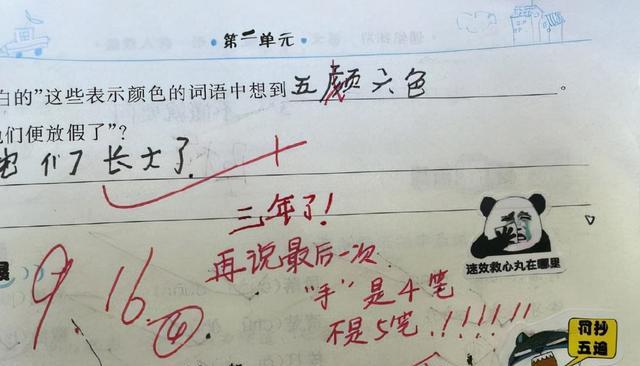 第二单元
白的"这些表示颜色的词语中想到 五颜六色。
们便放假了"?
们了长大了.
三年了!
再说最后一次
"手"是4笔
不是5笔.!!!!!!
速效救心丸在哪里
9. 16. ④
罚抄
五遍